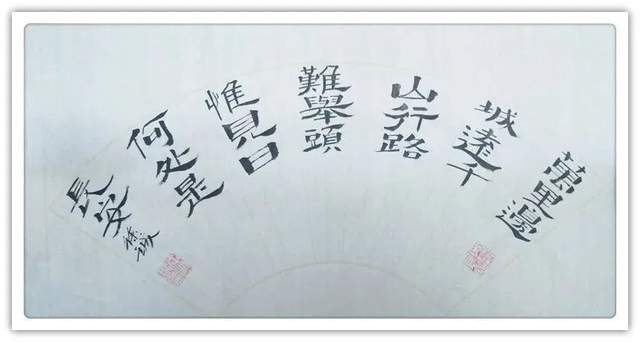 萬里邊
城遠千
山行路
難舉頭
惟見日
何处是
長安